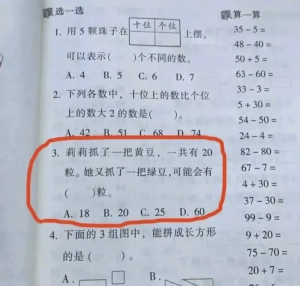 选一选
1. 用 5 颗珠子在 十位 个位 上摆,
可以表示( )个不同的数。
A. 4 B. 5 C. 6 D. 7
2. 下列各数中，十位上的数比个位
上的数大 2 的数是( )。
A. 42 B. 51 C. 68 D. 74
3. 莉莉抓了一把黄豆，一共有 20
粒。她又抓了一把绿豆,可能会有
( )粒。
A. 18 B. 20 C. 25 D. 60
4. 下面的 3 组图中，能拼成长方形
的是( )。
A. B.
算一算
35－5＝
48－40＝
50＋5＝
63－60＝
33－3＝
5＋30＝
54－50＝
24－4＝
82－80＝
67－7＝
4＋30＝
37－30＝
99－9＝
9＋20＝
75－70＝
20＋7＝